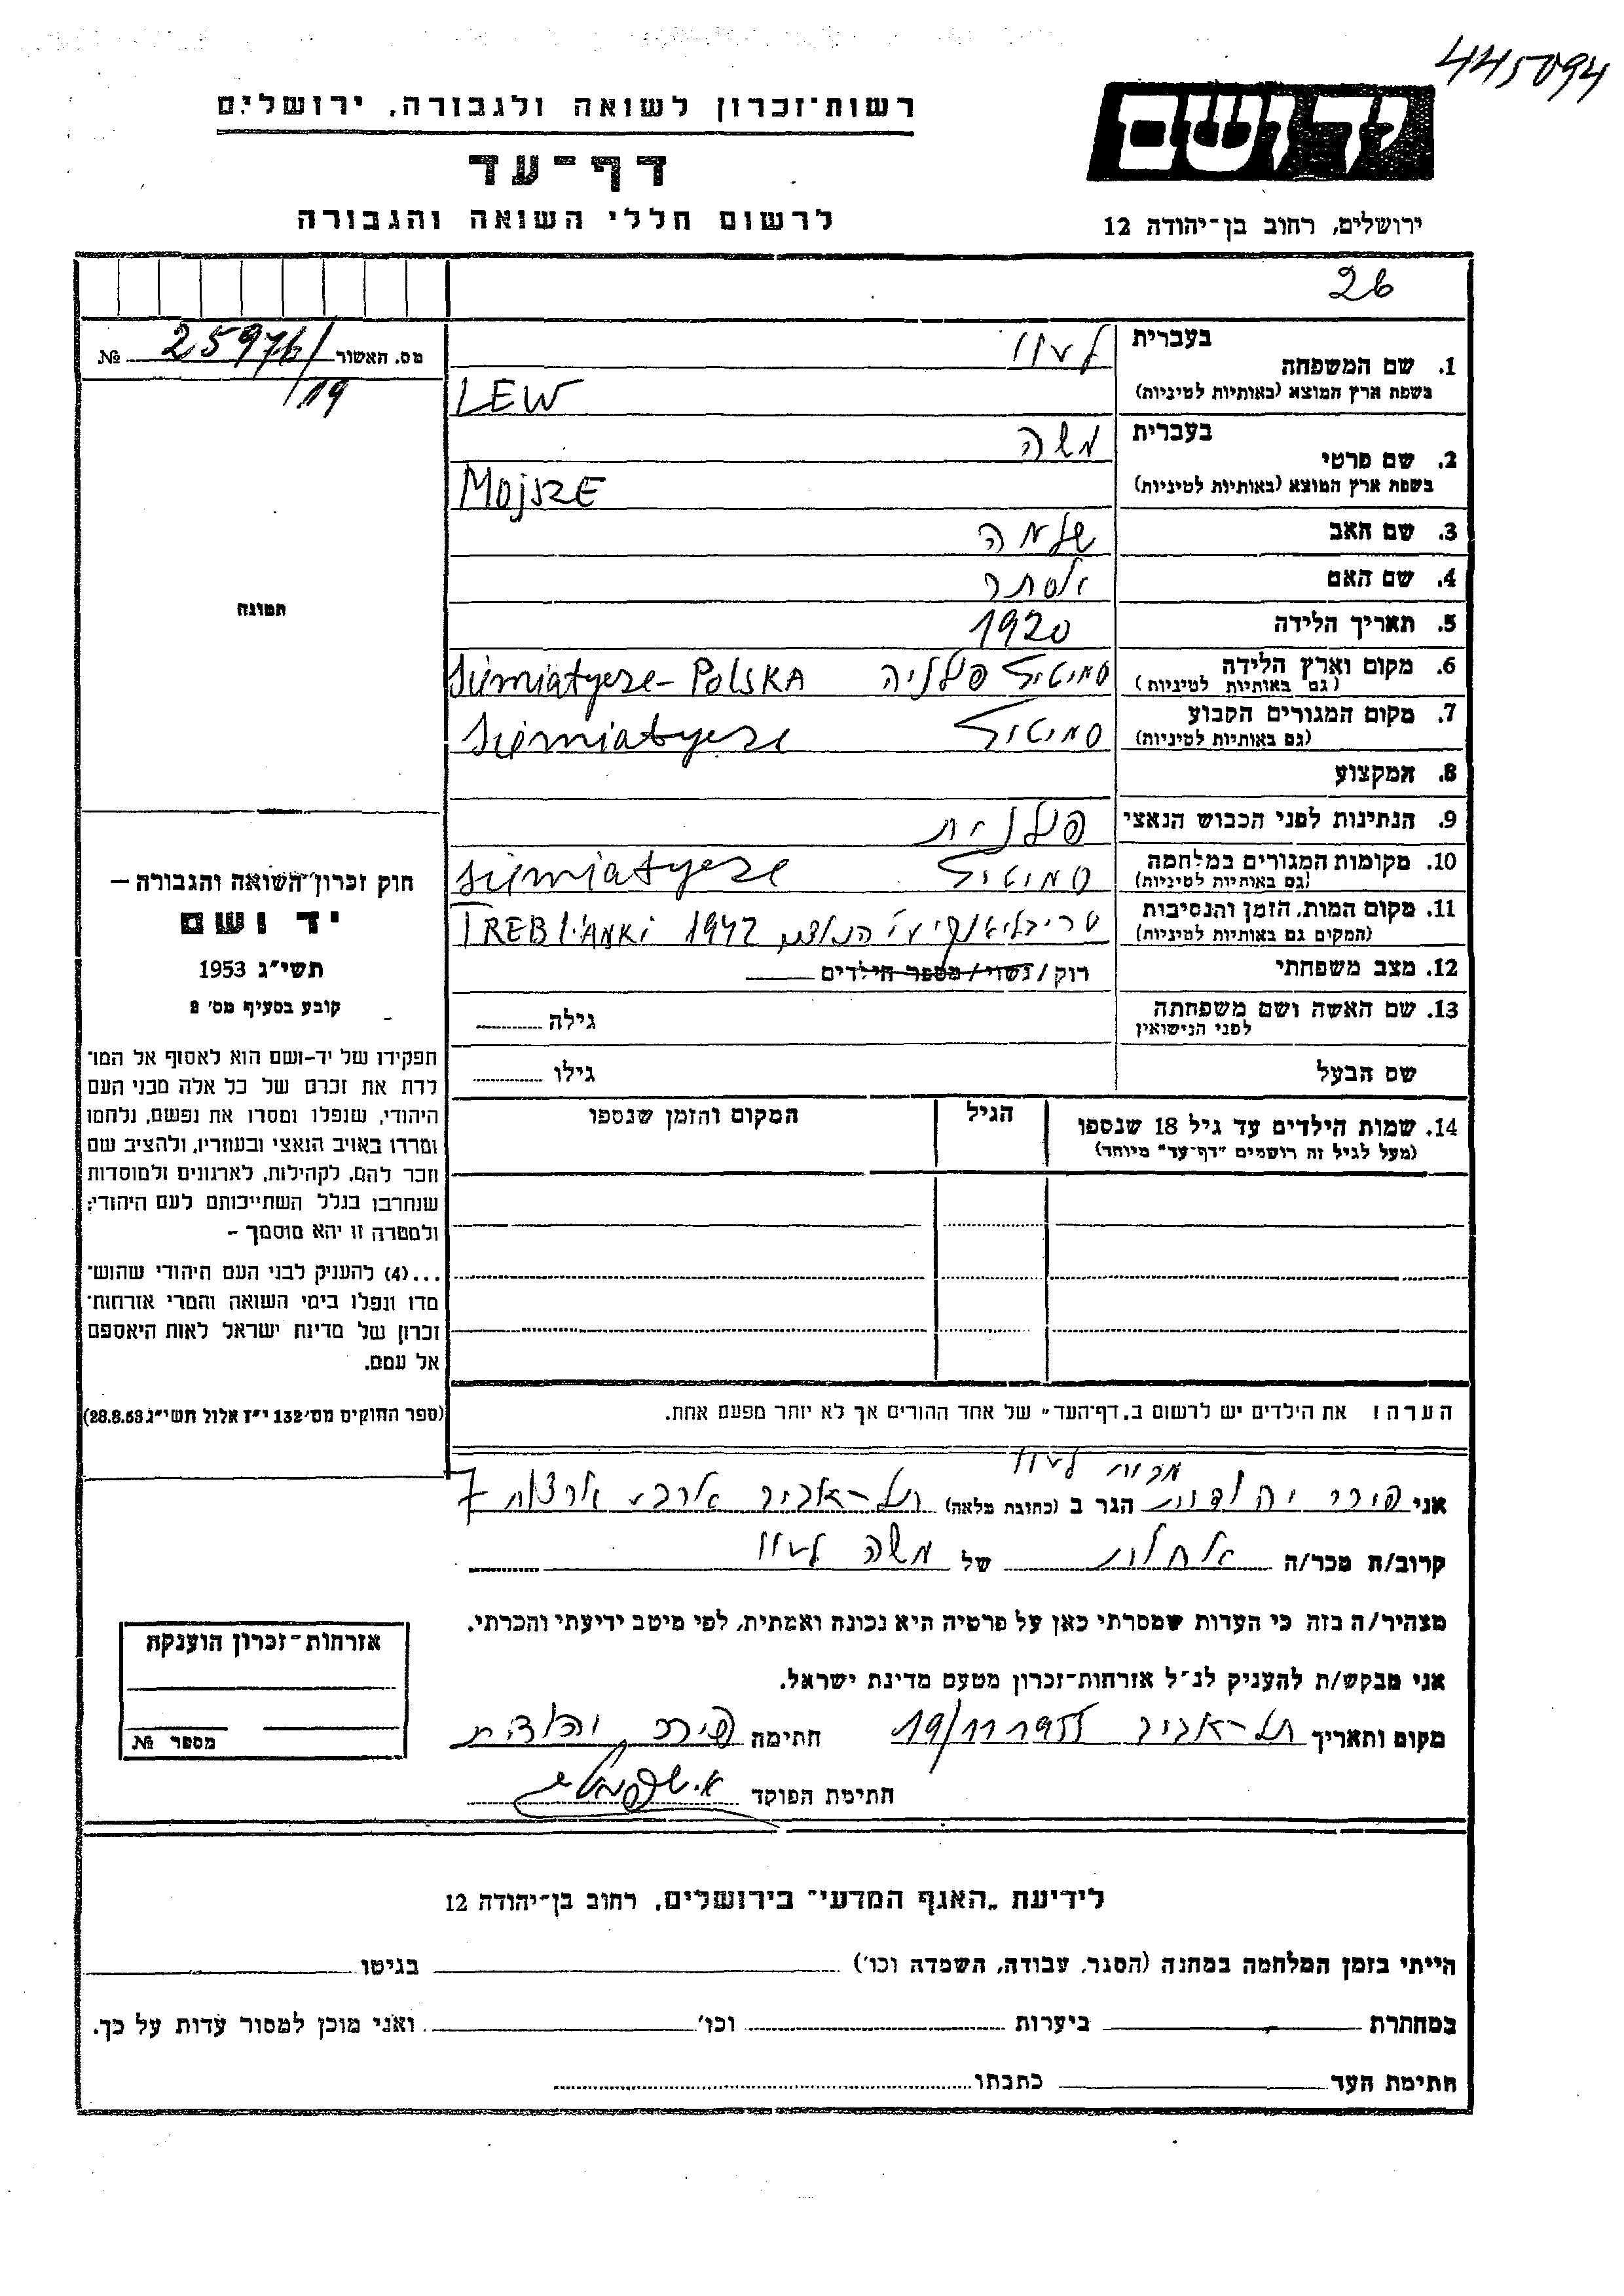 445094
רשות־זכרון לשואה ולגבורה, ירושלים
יד ושם
דף־עד
לרשום חללי השואה והגבורה
ירושלים, רחוב בן־יהודה 12
26
מס. האשור 25976/ №
/19
1. שם המשפחה
בעברית
בשפת ארץ המוצא (באותיות לטיניות) LEW
2. שם פרטי
בעברית משה
בשפת ארץ המוצא (באותיות לטיניות) MOJSZE
3. שם האב שלמה
4. שם האם אסתר
5. תאריך הלידה 1920
6. מקום וארץ הלידה Siemiatycze - POLSKA
(גם באותיות לטיניות)
7. מקום המגורים הקבוע Siemiatycze
(גם באותיות לטיניות)
8. המקצוע
9. הנתינות לפני הכבוש הנאצי פולנית
10. מקומות המגורים במלחמה Siemiatycze
(גם באותיות לטיניות)
11. מקום המות, הזמן והנסיבות TREBLIANKI 1942
(המקום גם באותיות לטיניות)
12. מצב משפחתי רוק/נשוי/מספר הילדים
13. שם האשה ושם משפחתה גילה
לפני הנישואין
שם הבעל גילו
14. שמות הילדים עד גיל 18 שנספו הגיל המקום והזמן שנספו
(מעל לגיל זה רושמים "דף־עד" מיוחד)
תמונה
חוק זכרון השואה והגבורה —
יד ושם
תשי״ג 1953
קובע בסעיף מס׳ 2
תפקידו של יד-ושם הוא לאסוף אל המו־
לדת את זכרם של כל אלה מבני העם
היהודי, שנפלו ומסרו את נפשם, נלחמו
ומרדו באויב הנאצי ובעוזריו, ולהציב שם
וזכר להם, לקהילות, לארגונים ולמוסדות
שנחרבו בגלל השתייכותם לעם היהודי;
ולמטרה זו יהא מוסמך –
...(4) להעניק לבני העם היהודי שהוש־
מדו ונפלו בימי השואה והמרי אזרחות־
זכרון של מדינת ישראל לאות היאספם
אל עמם.
(ספר החוקים מס׳ 132 י״ז אלול תשי״ג 28.8.53)
הערה: את הילדים יש לרשום ב„דף־העד" של אחד ההורים אך לא יותר מפעם אחת.
אני יהודית הגר ב (כתובת מלאה) תל-אביב ארבע ארצות 7
קרוב/ת מכר/ה אחות של משה
מצהיר/ה בזה כי העדות שמסרתי כאן על פרטיה היא נכונה ואמתית, לפי מיטב ידיעתי והכרתי.
אני מבקש/ת להעניק לנ״ל אזרחות־זכרון מטעם מדינת ישראל.
מקום ותאריך תל-אביב 19/11 1955 חתימה יהודית
חתימת הפוקד
אזרחות־זכרון הוענקה
מספר №
לידיעת „האגף המדעי" בירושלים, רחוב בן־יהודה 12
הייתי בזמן המלחמה במחנה (הסגר, עבודה, השמדה וכו׳) בגיטו
במחתרת ביערות וכו׳ ואני מוכן למסור עדות על כך.
חתימת העד כתבתו